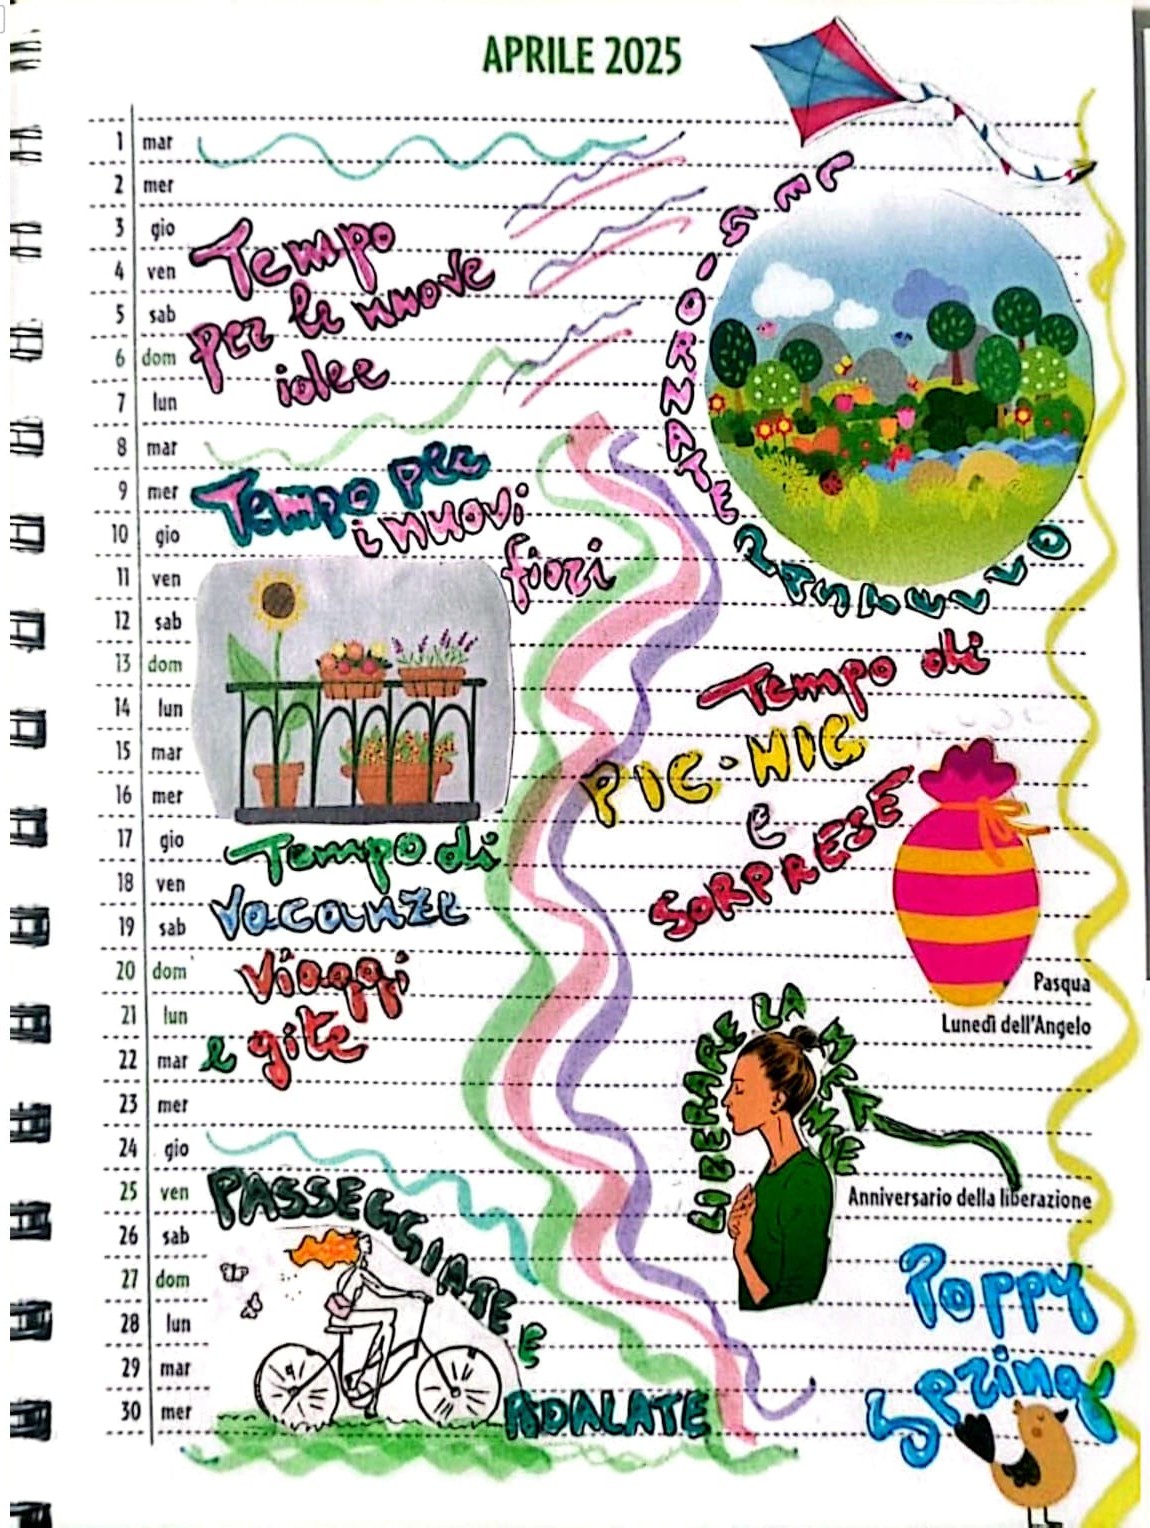 APRILE 2025
1 mar
2 mer
3 gio
4 ven
5 sab
6 dom
7 lun
8 mar
9 mer
10 gio
11 ven
12 sab
13 dom
14 lun
15 mar
16 mer
17 gio
18 ven
19 sab
20 dom
21 lun
22 mar
23 mer
24 gio
25 ven
26 sab
27 dom
28 lun
29 mar
30 mer
Tempo
per le nuove
idee
Tempo per
i nuovi
fiori
GIORNATE
Tempo di
PIC-NIC
e
SORPRESE
Tempo di
vacanze
viaggi
e gite
Pasqua
Lunedì dell'Angelo
LIBERARE LA MENTE
Anniversario della liberazione
PASSEGGIATE
E
Poppy
Spring